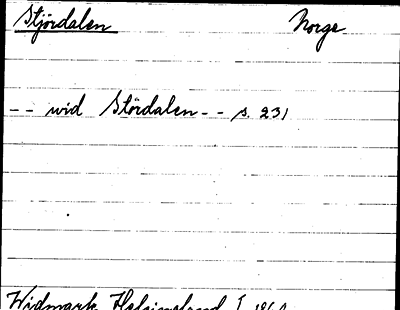 Stjördalen Norge
-- wid Stördalen -- s. 231
Widmark, Helsingland I